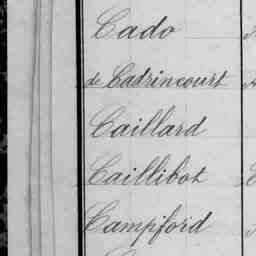 Cado
de Cadrincourt
Caillard
Caillibot
Campford